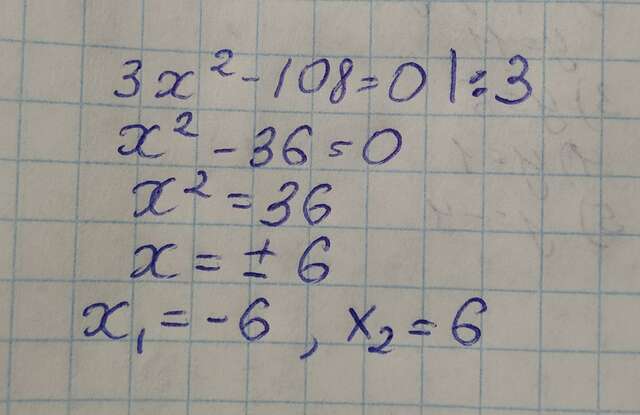 3x² - 108 = 0 | : 3
x² - 36 = 0
x² = 36
x = ± 6
x₁ = -6 , x₂ = 6